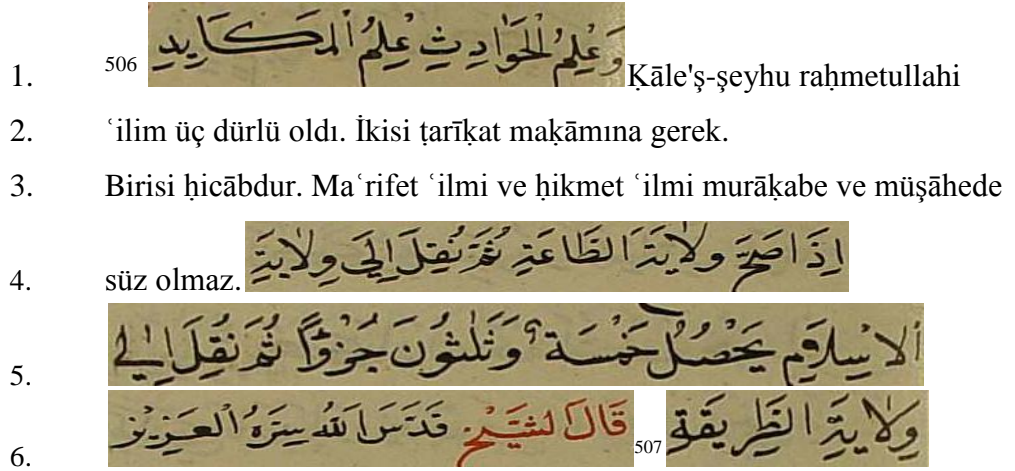 1. 506 وَعِلْمُ الْحَوَادِثِ عِلْمُ الْمَكَايِدِ Ḳāle'ş-şeyhu raḥmetullahi
2. ʿilim üç dürlü oldı. İkisi ṭarīḳat maḳāmına gerek.
3. Birisi ḥicābdur. Maʿrifet ʿilmi ve ḥikmet ʿilmi murāḳabe ve müşāhede
4. süz olmaz. اِذَا صَحَّ وِلَايَةَ الطَّاعَةِ ثُمَّ نُقِلَ اِلَى وِلَايَةِ
5. الْاِسْلَامِ يَحْصُلُ خَمْسَةٌ وَثَلٰثُونَ جُزْوًا ثُمَّ نُقِلَ اِلٰى
6. وِلَايَةِ الطَّرِيقَةِ 507 قَالَ الشَّيْخِ قَدَّسَ اللّٰهُ سِرَّهُ الْعَزِيزِ